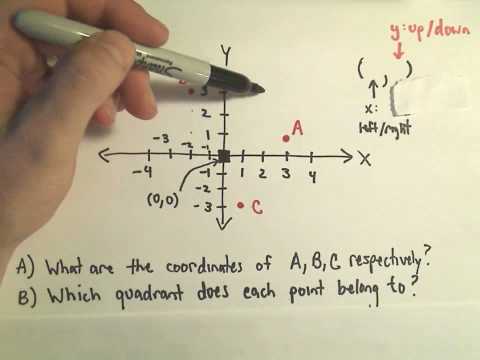 y: up/down
Y
( , )
x:
left/right
3
2
1
A
-4 -3 -2 -1 1 2 3 4 X
-1
-2
-3
(0,0)
C
A) What are the coordinates of A, B, C respectively?
B) Which quadrant does each point belong to?